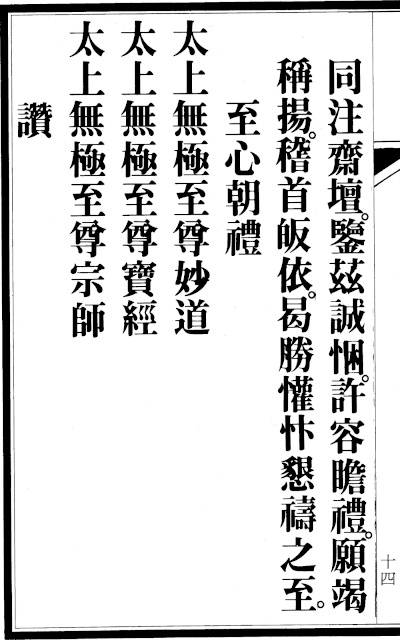 同注齋壇。鑒茲誠悃。許容瞻禮。願竭
稱揚。稽首皈依。曷勝懽忭懇禱之至。
至心朝禮
太上無極至尊妙道
太上無極至尊寶經
太上無極至尊宗師
讚
十四